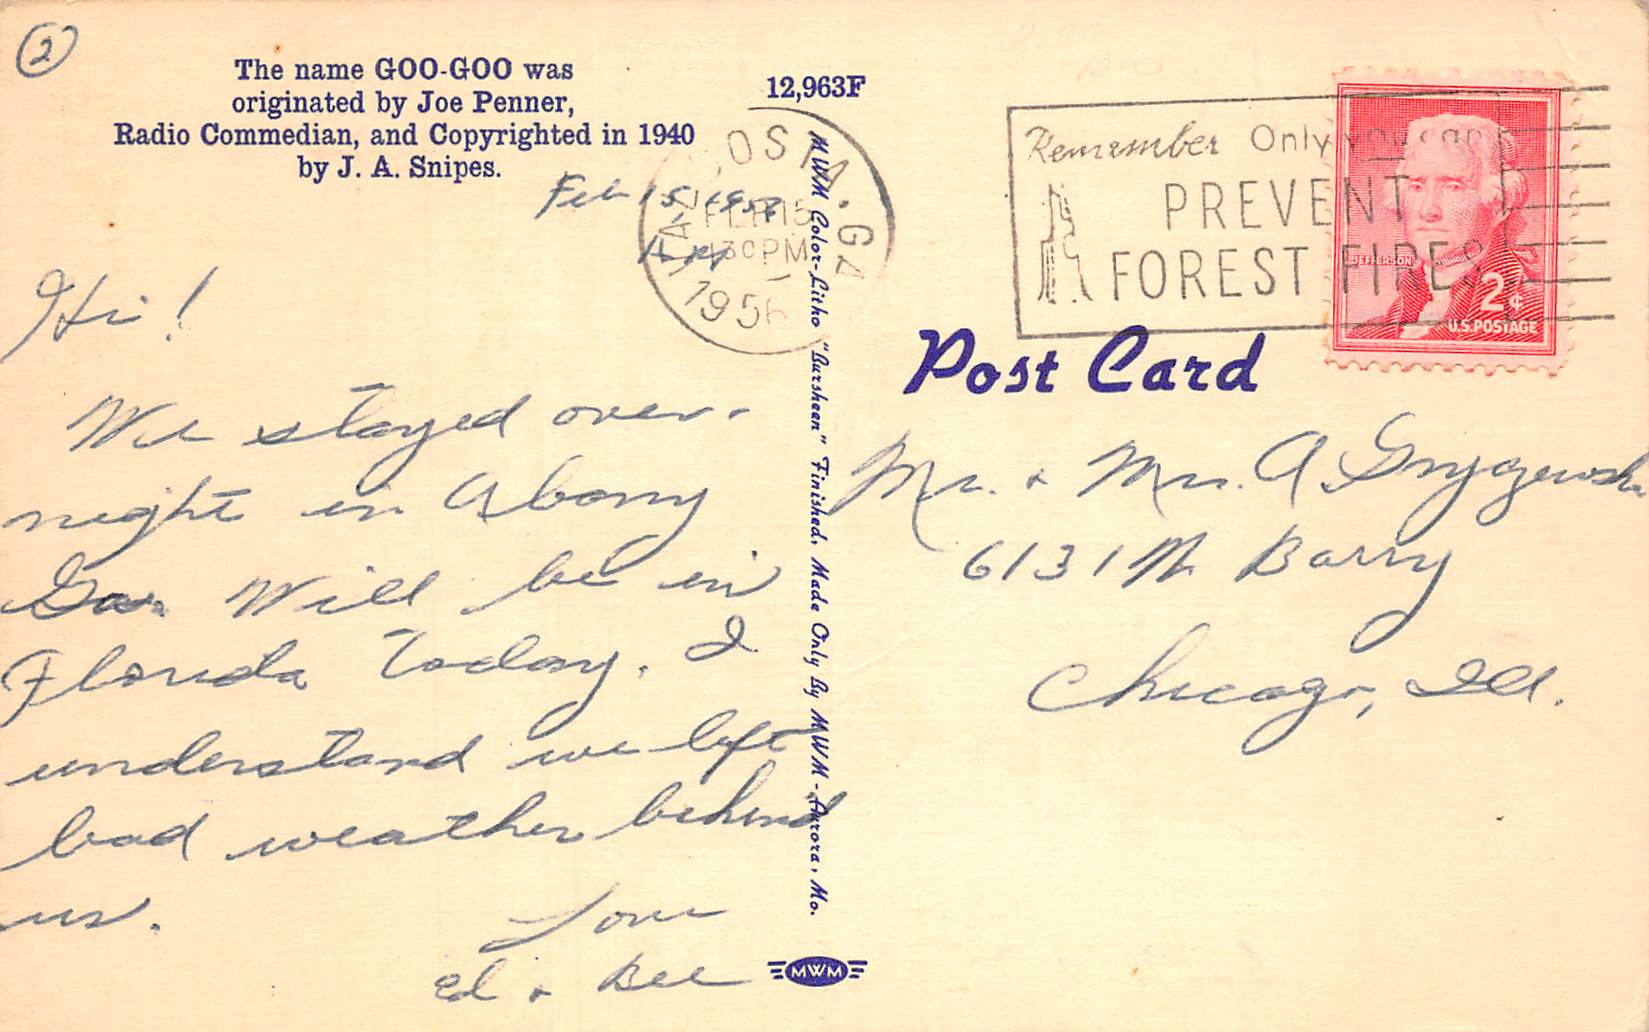 2
The name GOO-GOO was
originated by Joe Penner,
Radio Commedian, and Copyrighted in 1940
by J. A. Snipes.
12,963F
Feb 15, 1957
VALDOSTA, GA
FEB 15
130 PM
1956
Remember Only you can
PREVENT
FOREST FIRES
JEFFERSON
2¢
U.S. POSTAGE
Post Card
Hi!
We stayed over-
night in Albany
Ga. Will be in
Florida Today. I
understand we left
bad weather behind
us.
Love
Ed + Bee
MWM Color-Litho "Bursheen" Finished, Made Only By MWM - Aurora, Mo.
MWM
Mr. + Mrs. A
6131 W. Barry
Chicago, Ill.